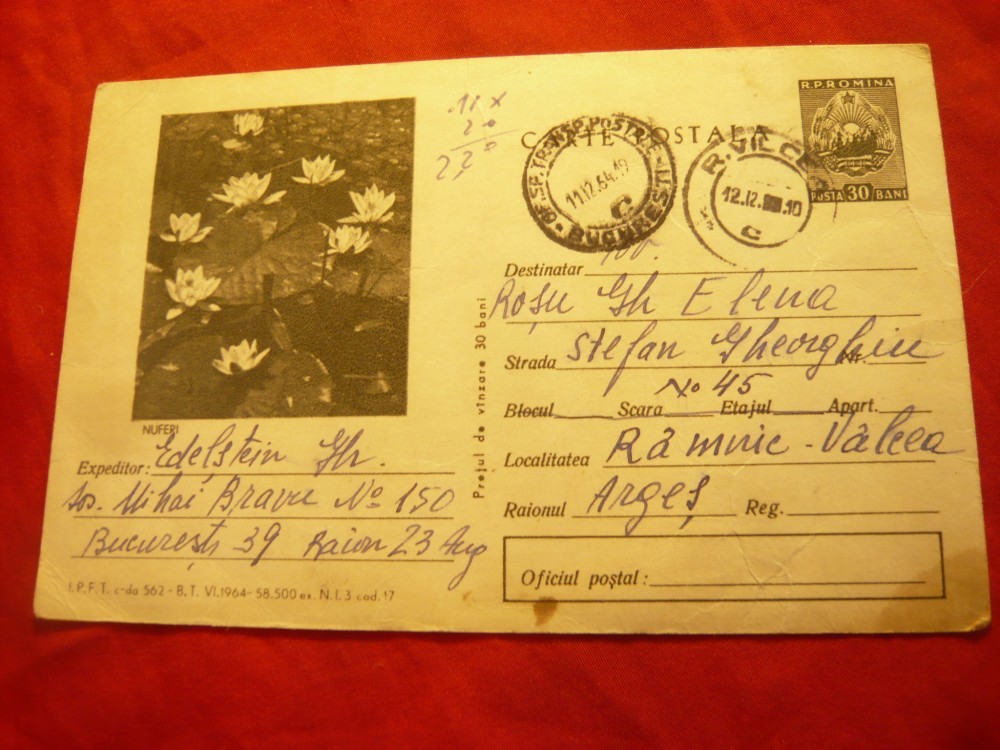 11 x
20
220
CARTE POSTALA
R.P.ROMINA
POSTA 30 BANI
11.12.64.19
C
BUCUREȘTI
R. VILCEA
12.12. 10
C
NUFERI
Expeditor: Edelștein Gh.
Șos. Mihai Bravu No 150
București 39 Raion 23 Aug
I.P.F.T. c-da 562 - B.T. VI.1964 - 58.500 ex. N.I.3 cod.17
Prețul de vînzare 30 bani
Destinatar Tov.
Roșu Gh Elena
Strada Ștefan Gheorghiu Nr.
No 45
Blocul Scara Etajul Apart.
Localitatea Râmnic-Vâlcea
Raionul Argeș Reg.
Oficiul poștal: